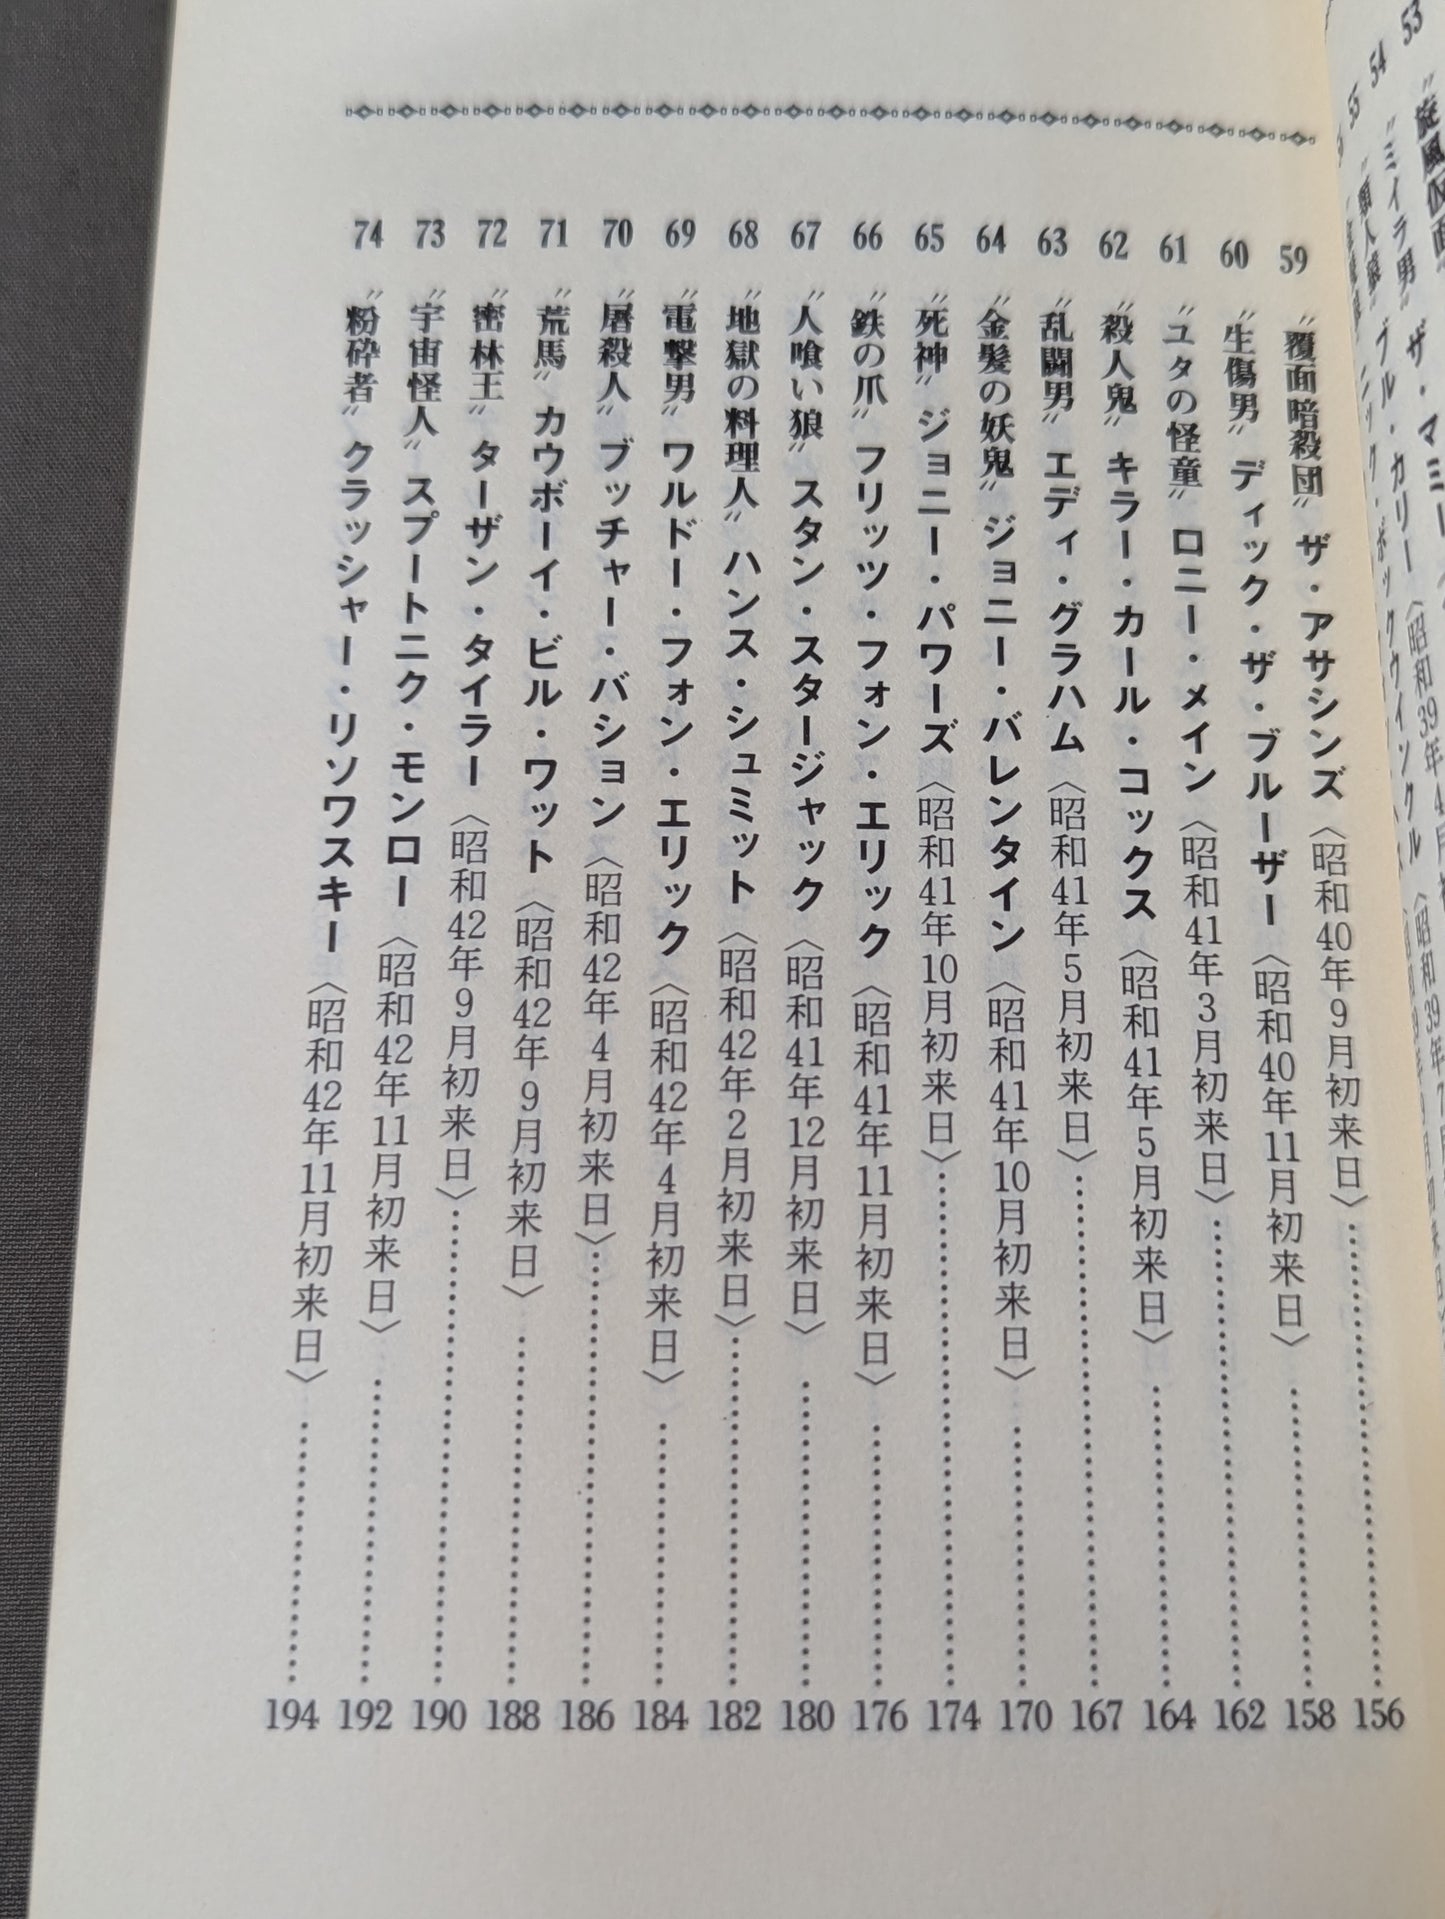 53 〝旋風仮面〟
54 〝ミイラ男〟 ザ・マミー 〈昭和39年4月初
55 〝類人猿〟 ブル・カリー 〈昭和39年7月
ニック・ボックウインクル
59 〝覆面暗殺団〟 ザ・アサシンズ 〈昭和40年9月初来日〉 156
60 〝生傷男〟 ディック・ザ・ブルーザー 〈昭和40年11月初来日〉 158
61 〝ユタの怪童〟 ロニー・メイン 〈昭和41年3月初来日〉 162
62 〝殺人鬼〟 キラー・カール・コックス 〈昭和41年5月初来日〉 164
63 〝乱闘男〟 エディ・グラハム 〈昭和41年5月初来日〉 167
64 〝金髪の妖鬼〟 ジョニー・バレンタイン 〈昭和41年10月初来日〉 170
65 〝死神〟 ジョニー・パワーズ 〈昭和41年10月初来日〉 174
66 〝鉄の爪〟 フリッツ・フォン・エリック 〈昭和41年11月初来日〉 176
67 〝人喰い狼〟 スタン・スタージャック 〈昭和41年12月初来日〉 180
68 〝地獄の料理人〟 ハンス・シュミット 〈昭和42年2月初来日〉 182
69 〝電撃男〟 ワルドー・フォン・エリック 〈昭和42年4月初来日〉 184
70 〝屠殺人〟 ブッチャー・バション 〈昭和42年4月初来日〉 186
71 〝荒馬〟 カウボーイ・ビル・ワット 〈昭和42年9月初来日〉 188
72 〝密林王〟 ターザン・タイラー 〈昭和42年9月初来日〉 190
73 〝宇宙怪人〟 スプートニク・モンロー 〈昭和42年11月初来日〉 192
74 〝粉砕者〟 クラッシャー・リソワスキー 〈昭和42年11月初来日〉 194